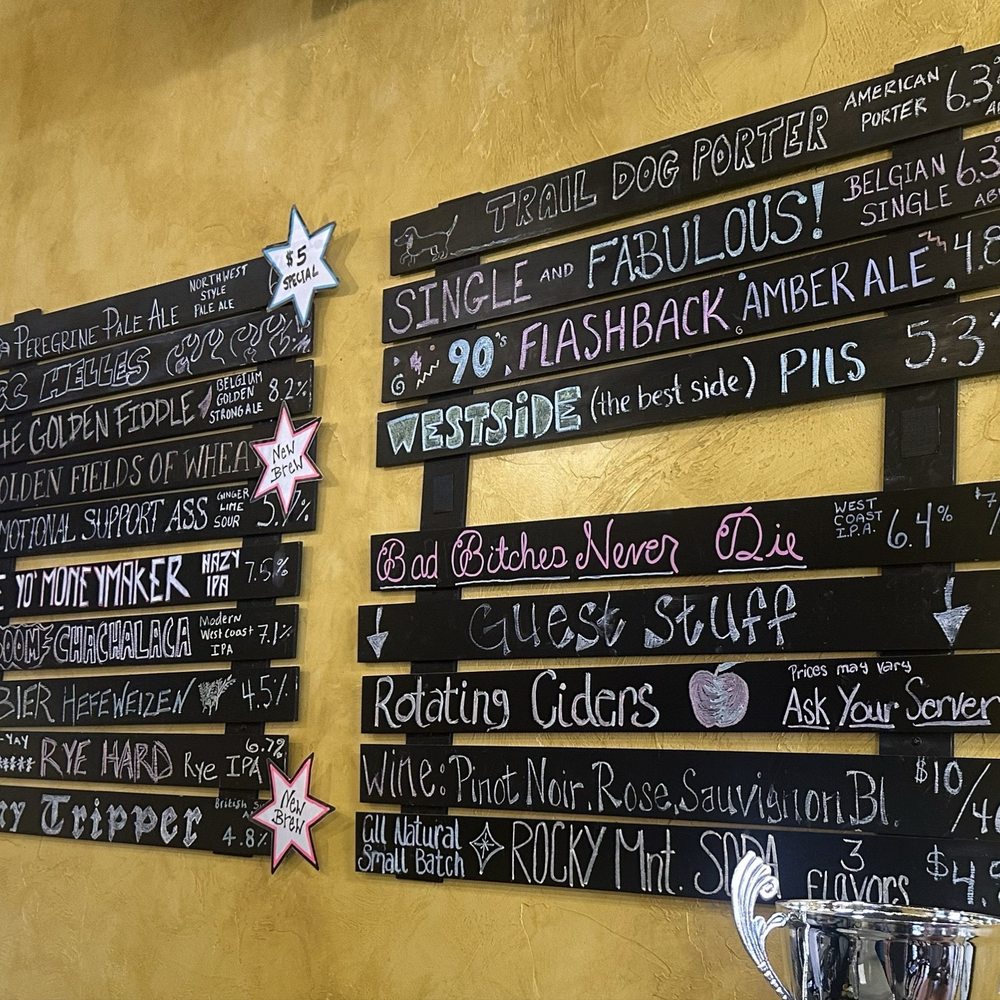 $5
SPECIAL
PEREGRINE PALE ALE NORTHWEST STYLE PALE ALE
HELLES
GOLDEN FIDDLE BELGIUM GOLDEN STRONG ALE 8.2%
FIELDS OF
NEW BREW
SUPPORT ASS GINGER LIME SOUR
YO' MONEYMAKER HAZY IPA 7.5%
CHACHALACA Modern West Coast IPA 7.1%
HEFEWEIZEN 4.5%
RYE HARD Rye IPA 6.7%
Tripper 4.8%
NEW BREW
TRAIL DOG PORTER AMERICAN PORTER 6.3
SINGLE AND FABULOUS! BELGIAN SINGLE 6.3
90's FLASHBACK AMBER ALE 4.8
WESTSIDE (the best side) PILS 5.3%
Bad Bitches Never Die WEST COAST I.P.A. 6.4%
Guest Stuff
Rotating Ciders Prices may vary Ask Your Server
Wine: Pinot Noir, Rose, Sauvignon Bl. $10/
All Natural Small Batch ROCKY Mnt. SODA 3 flavors